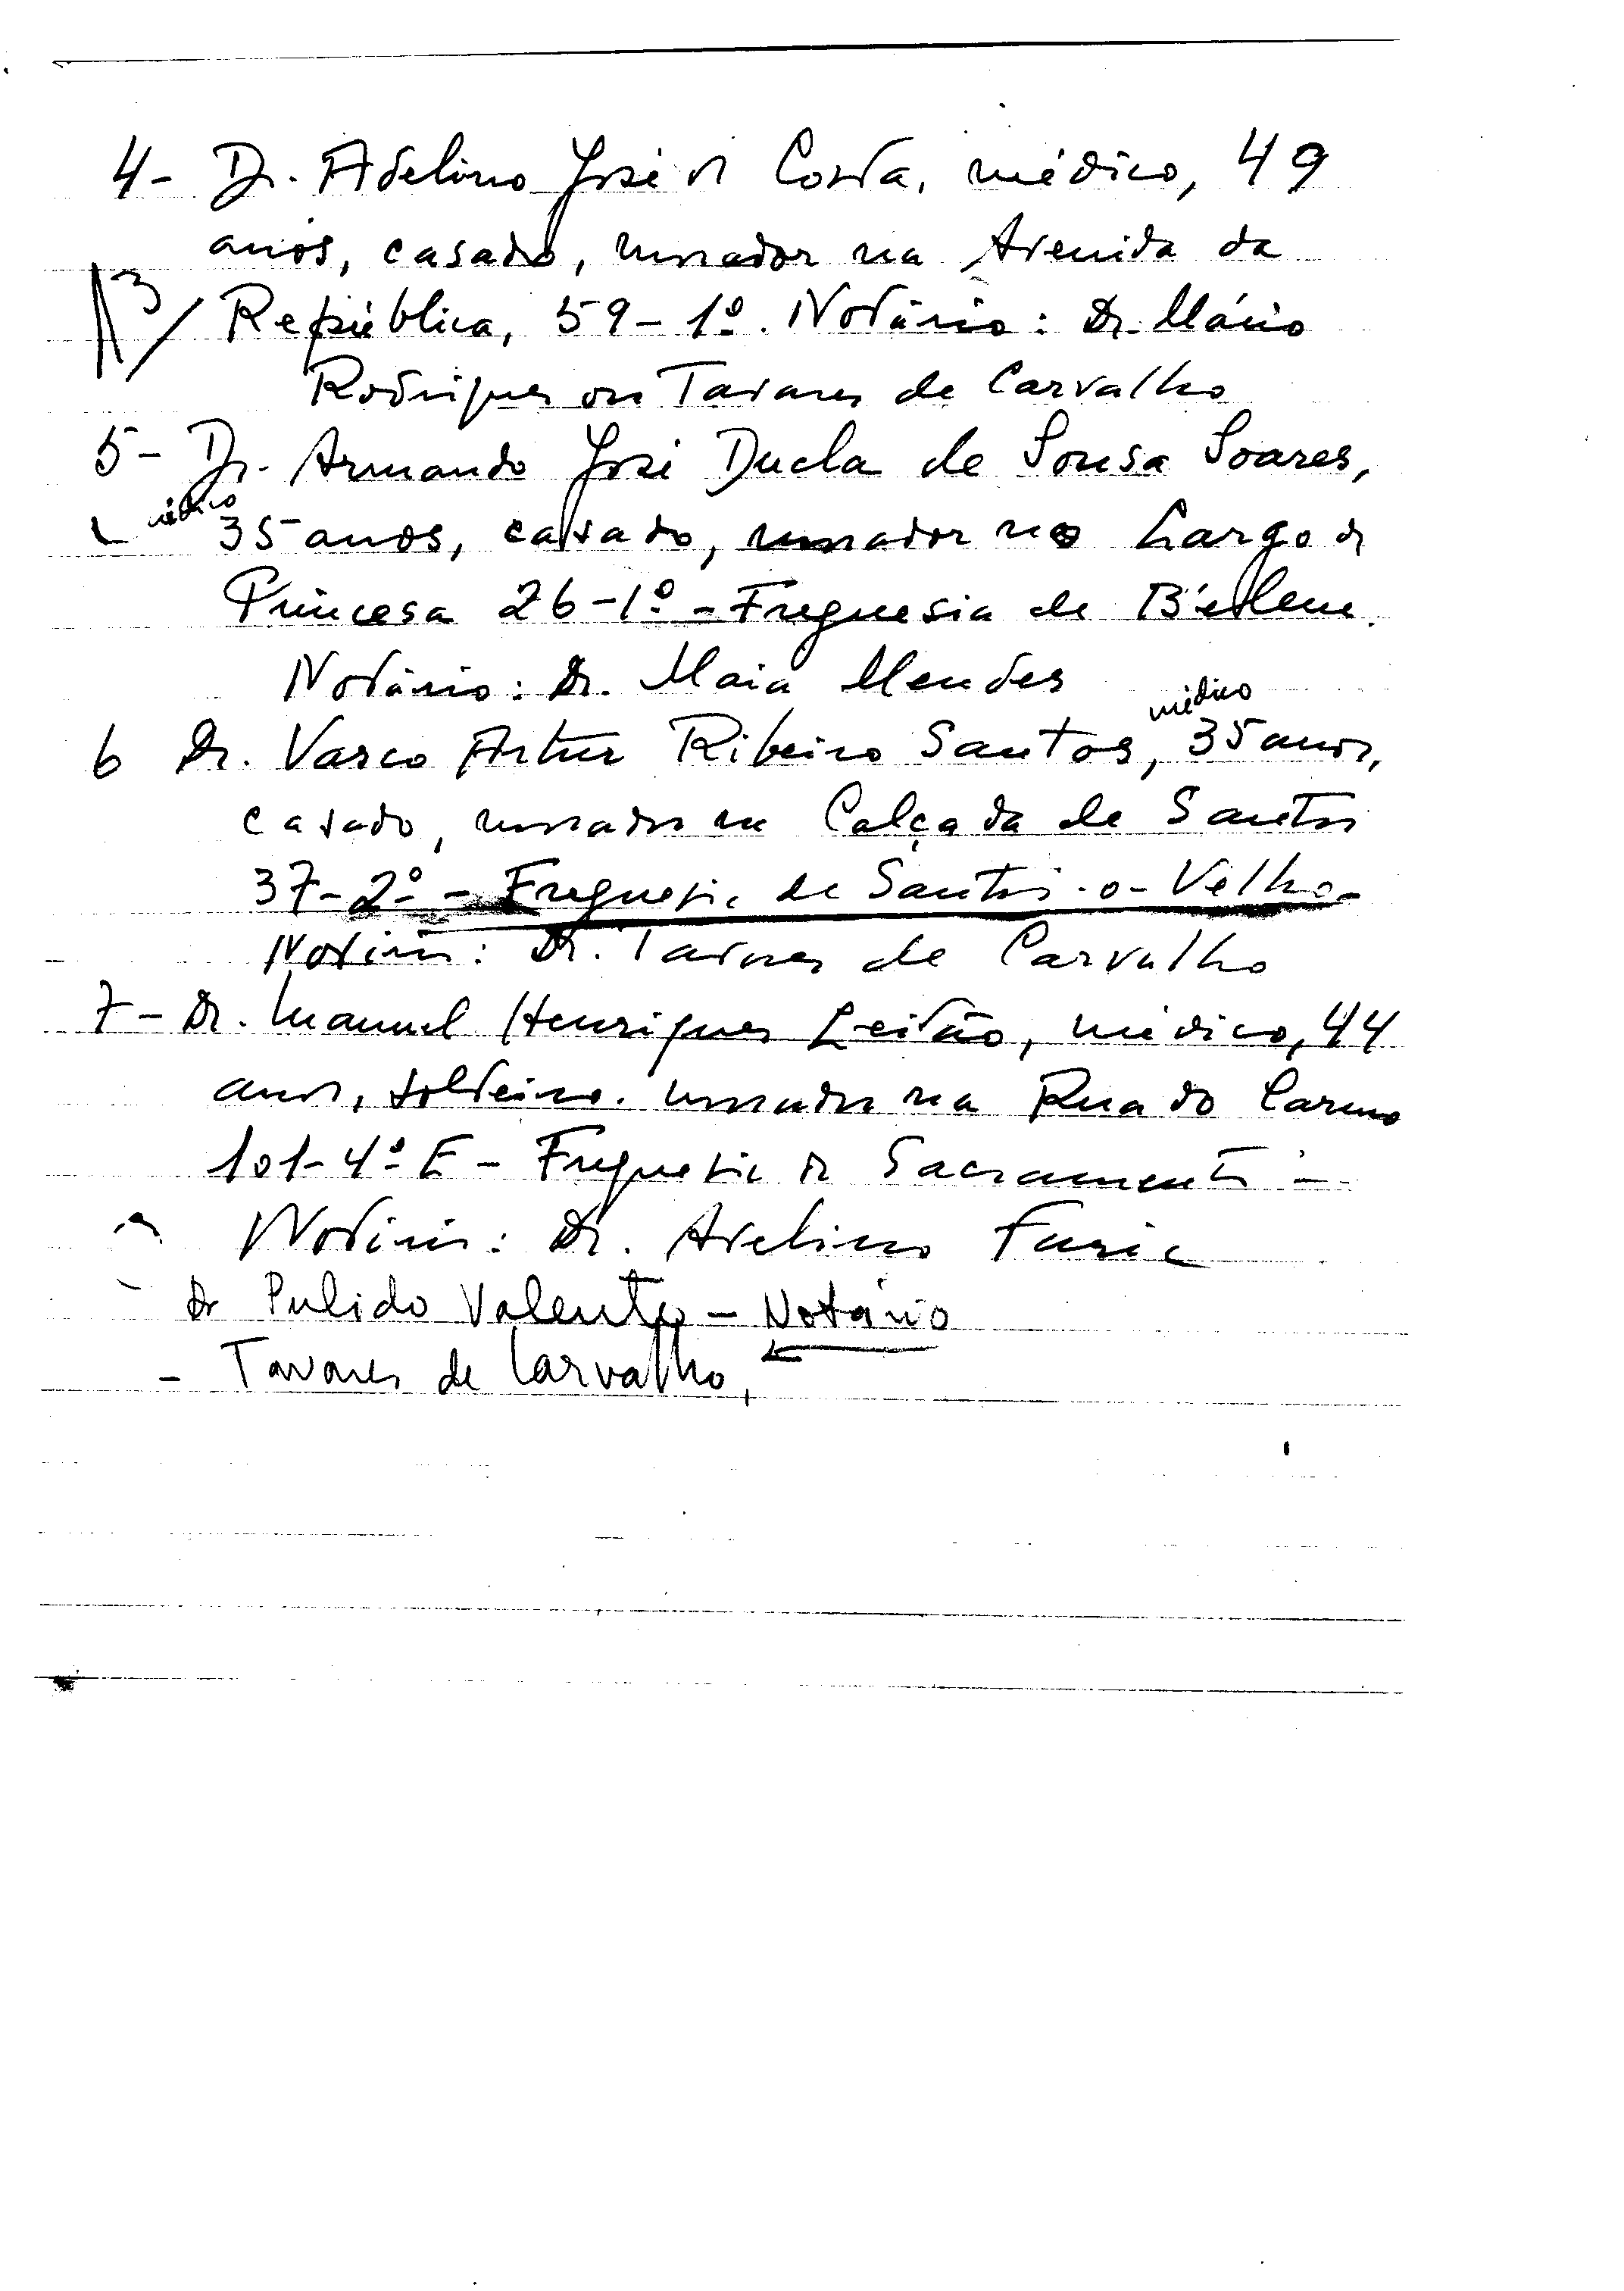 4- Dr. Adelino José da Costa, médico, 49
anos, casado, morador na Avenida da
República, 59-1º. Notário: Dr. Mário
Rodrigues ou Tavares de Carvalho
5- Dr. Armando José Ducla de Sousa Soares,
médico
35 anos, casado, morador no Largo da
Princesa 26-1º - Freguesia de Belem.
Notário: Dr. Maia Mendes
médico
6 Dr. Vasco Artur Ribeiro Santos, 35 anos,
casado, morador na Calçada de Santos
37-2º - Freguesia de Santos-o-Velho-
Notário: Dr. Tavares de Carvalho
7- Dr. Manuel Henriques Leitão, médico, 44
anos, solteiro. morador na Rua do Carmo
101-4º E - Freguesia do Sacramento -
Notário: Dr. Avelino Faria
Dr Pulido Valente - Notário
- Tavares de Carvalho,